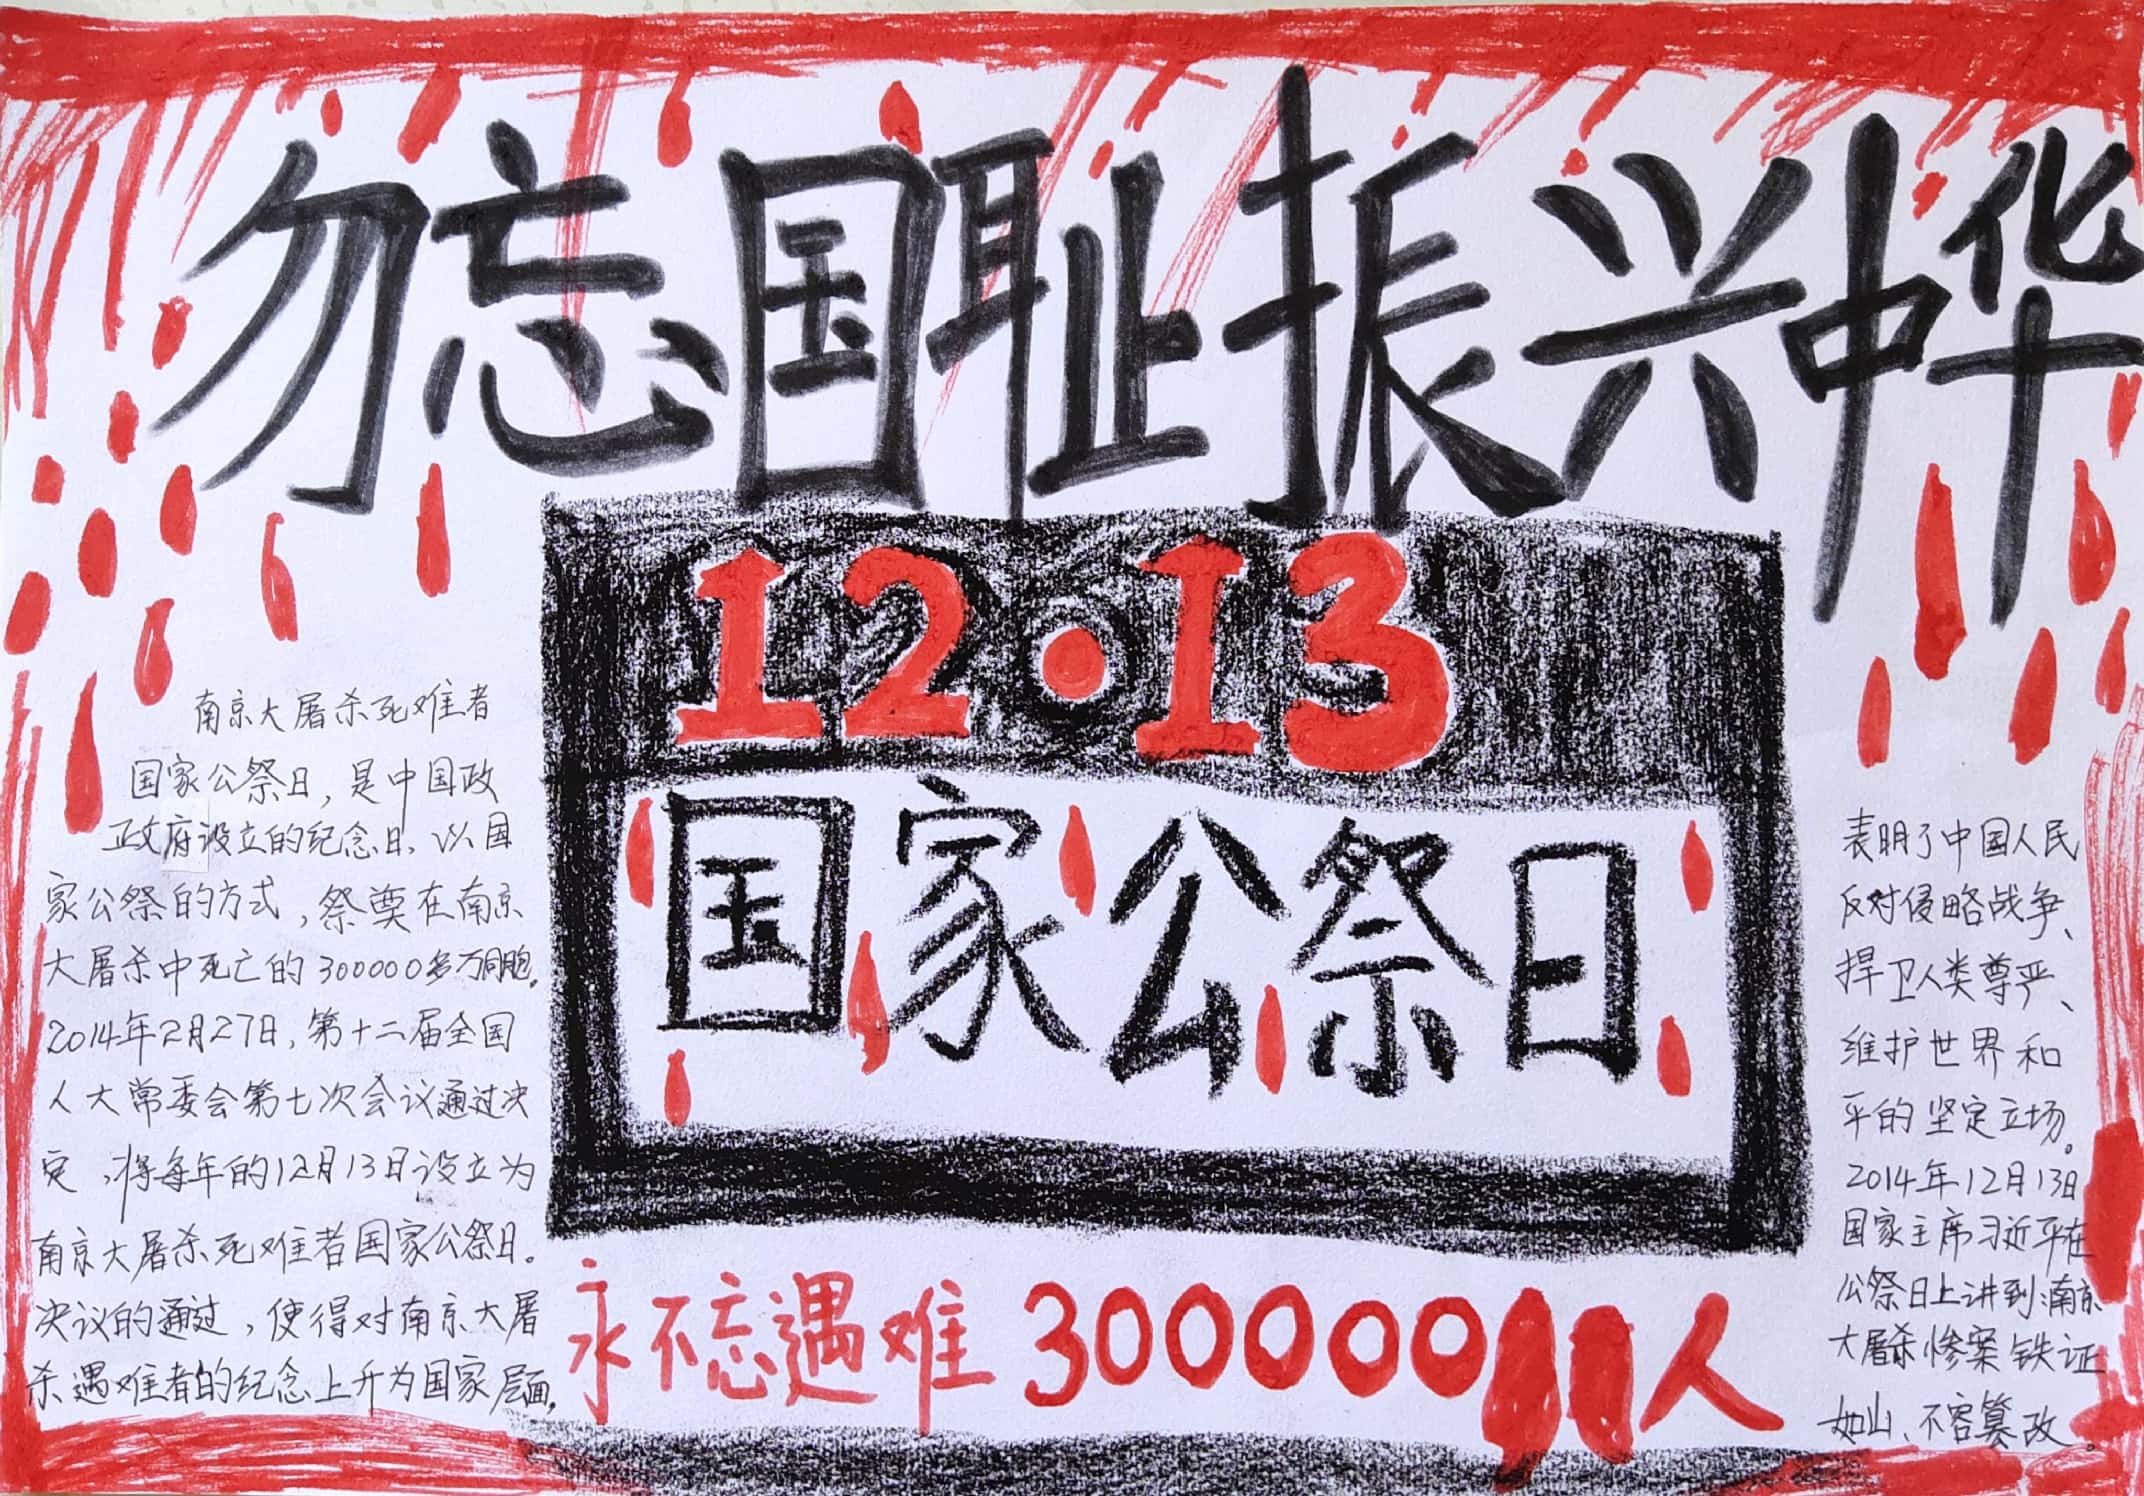 勿忘国耻振兴中华
12·13
国家公祭日
南京大屠杀死难者
国家公祭日，是中国政
政府设立的纪念日，以国
家公祭的方式，祭奠在南京
大屠杀中死亡的300000多万同胞。
2014年2月27日，第十二届全国
人大常委会第七次会议通过决
定，将每年的12月13日设立为
南京大屠杀死难者国家公祭日。
决议的通过，使得对南京大屠
杀遇难者的纪念上升为国家层面，
表明了中国人民
反对侵略战争、
捍卫人类尊严、
维护世界和
平的坚定立场。
2014年12月13日
国家主席习近平在
公祭日上讲到:南京
大屠杀惨案铁证
如山、不容篡改。
永不忘遇难300000人